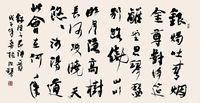 銀燭吐青煙
金尊對綺筵
離堂思琴瑟
別路繞山川
明月隱高樹
長河沒曉天
悠悠洛陽道
此會在何年